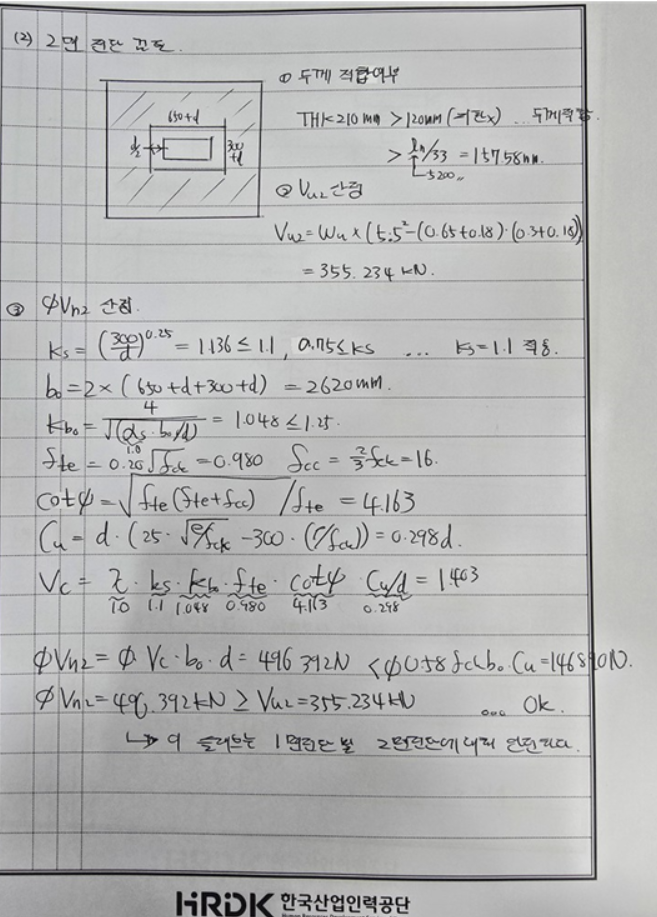 (2) 2면 전단 검토.
① 두께 적합여부
650+d
d/2
300+d
THK=210mm > 120mm (지판x) ... 두께적합.
> ln/33 = 157.58mm.
5200
② Vu2 산정
Vu2 = Wu × (5.5² - (0.65+0.18)·(0.3+0.18))
= 355.234 kN.
③ φVn2 산정.
ks = (300/d)^0.25 = 1.136 ≤ 1.1, 0.75 ≤ ks ... ks=1.1 적용.
b₀ = 2×(650+d+300+d) = 2620mm.
kb₀ = 4/√(αs·b₀/d) = 1.048 ≤ 1.25.
1.0
fte = 0.20√fck = 0.980 fcc = 2/3 fck = 16.
cotψ = √fte(fte+fcc) /fte = 4.163
Cu = d·(25·√ρ/fck - 300·(ρ/fck)) = 0.298d.
Vc = λ·ks·kb₀·fte·cotψ·Cu/d = 1.403
1.0 1.1 1.048 0.980 4.163 0.298
φVn2 = φ·Vc·b₀·d = 496392N < φ0.58fck b₀·Cu = 146890N.
φVn2 = 496.392kN ≥ Vu2 = 355.234kN ... Ok.
↳ 이 슬래브는 1면전단 및 2면전단에 대해 안전하다.
HRDK 한국산업인력공단